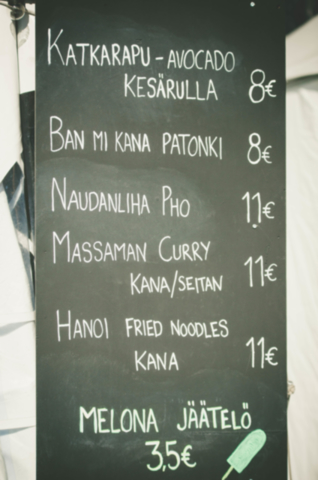 KATKARAPU - AVOCADO
KESÄRULLA 8€
BAN MI KANA PATONKI 8€
NAUDANLIHA PHO 11€
MASSAMAN CURRY
KANA/SEITAN 11€
HANOI FRIED NOODLES
KANA 11€
MELONA JÄÄTELÖ
3,5€